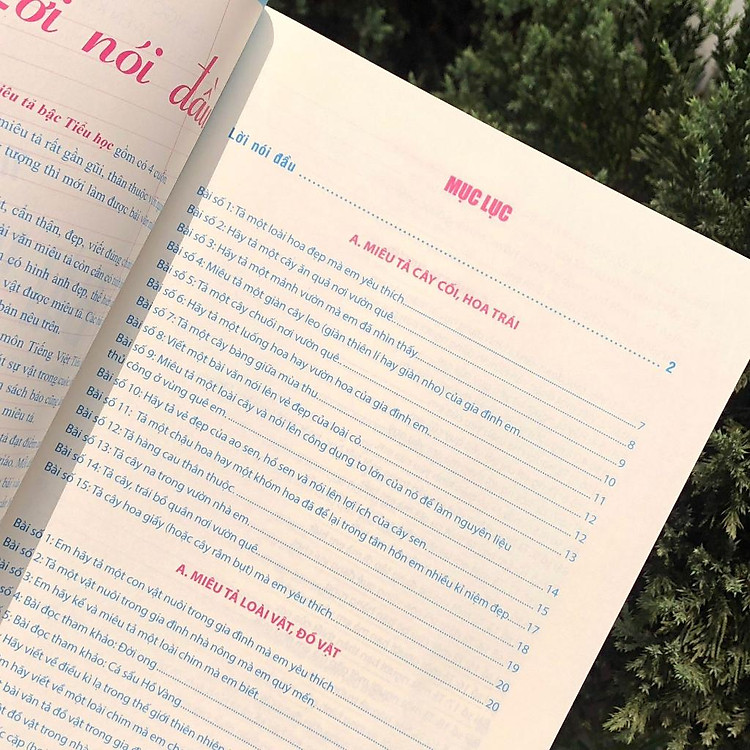 ời nói đầu
iêu tả bậc Tiểu học gồm có 4 cuốn
miêu tả rất gần gũi, thân thuộc với
tượng thì mới làm được bài văn
ất, cẩn thận, đẹp, viết đúng chính
ài văn miêu tả còn cần có tính
n có hình ảnh đẹp, thể hiện
vật được miêu tả. Các
bản nêu trên.
môn Tiếng Việt Tiểu
ất sự vật trong cuộc
n sách báo cũng
miêu tả.
tả đạt điểm
MỤC LỤC
Lời nói đầu ..... 2
A. MIÊU TẢ CÂY CỐI, HOA TRÁI
Bài số 1: Tả một loài hoa đẹp mà em yêu thích ..... 7
Bài số 2: Hãy tả một cây ăn quả nơi vườn quê ..... 8
Bài số 3: Hãy tả một mảnh vườn mà em đã nhìn thấy ..... 9
Bài số 4: Miêu tả một giàn cây leo (giàn thiên lí hay giàn nho) của gia đình em ..... 10
Bài số 5: Tả một cây chuối nơi vườn quê ..... 11
Bài số 6: Hãy tả một luống hoa hay vườn hoa của gia đình em ..... 12
Bài số 7: Tả một cây bàng giữa mùa thu ..... 12
Bài số 8: Viết một bài văn nói lên vẻ đẹp của loài cỏ ..... 13
Bài số 9: Miêu tả một loài cây và nói lên công dụng to lớn của nó để làm nguyên liệu
thủ công ở vùng quê em ..... 14
Bài số 10: Hãy tả vẻ đẹp của ao sen, hồ sen và nói lên lợi ích của cây sen ..... 15
Bài số 11: Tả một chậu hoa hay một khóm hoa đã để lại trong tâm hồn em nhiều kỉ niệm đẹp ..... 17
Bài số 12: Tả hàng cau thân thuộc ..... 18
Bài số 13: Tả cây na trong vườn nhà em ..... 19
Bài số 14: Tả cây, trái bồ quân nơi vườn quê ..... 20
Bài số 15: Tả cây hoa giấy (hoặc cây râm bụt) mà em yêu thích ..... 20
A. MIÊU TẢ LOÀI VẬT, ĐỒ VẬT
Bài số 1: Em hãy tả một con vật nuôi trong gia đình mà em yêu thích
Bài số 2: Tả một vật nuôi trong gia đình nhà nông mà em quý mến
3: Em hãy kể và miêu tả một loài chim mà em biết
4: Bài đọc tham khảo: Đời ong
Bài đọc tham khảo: Cá sấu Hồ Vàng
Hãy viết về điều kì lạ trong thế giới thiên nhiên
hãy viết về một loài chim mà em
bài văn tả đồ vật trong gia đình
đồ vật trong nhà
cặp (hoặc